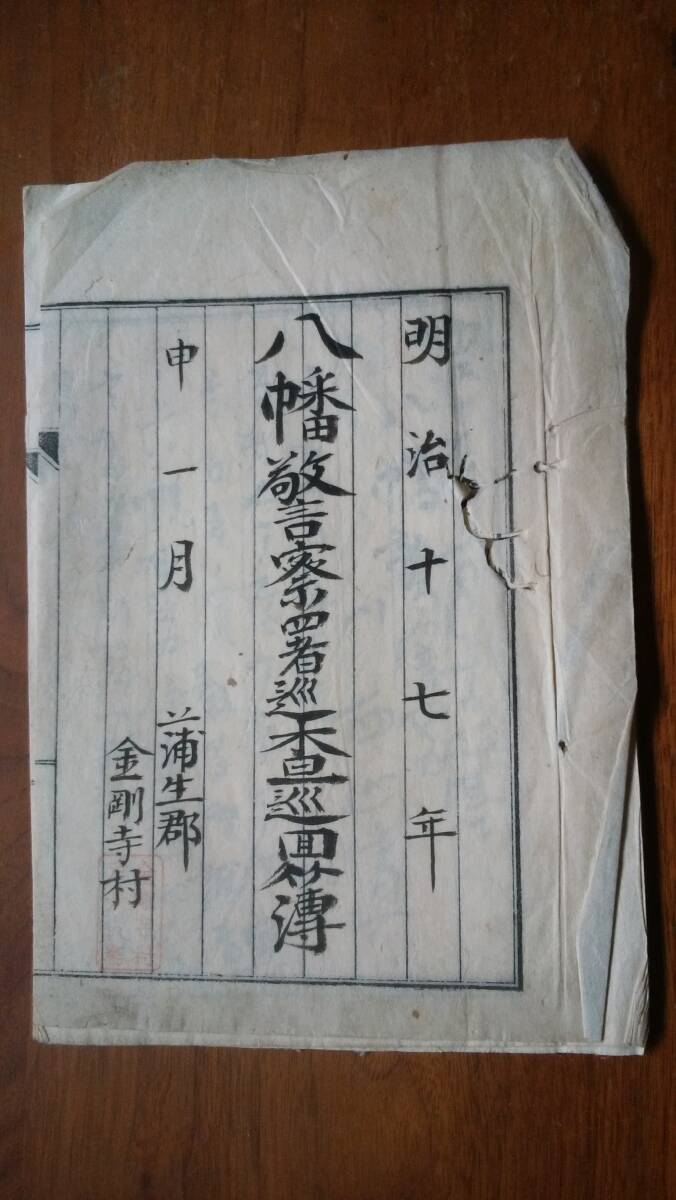 明治十七年
八幡警察署巡査巡回簿
申一月
蒲生郡
金剛寺村